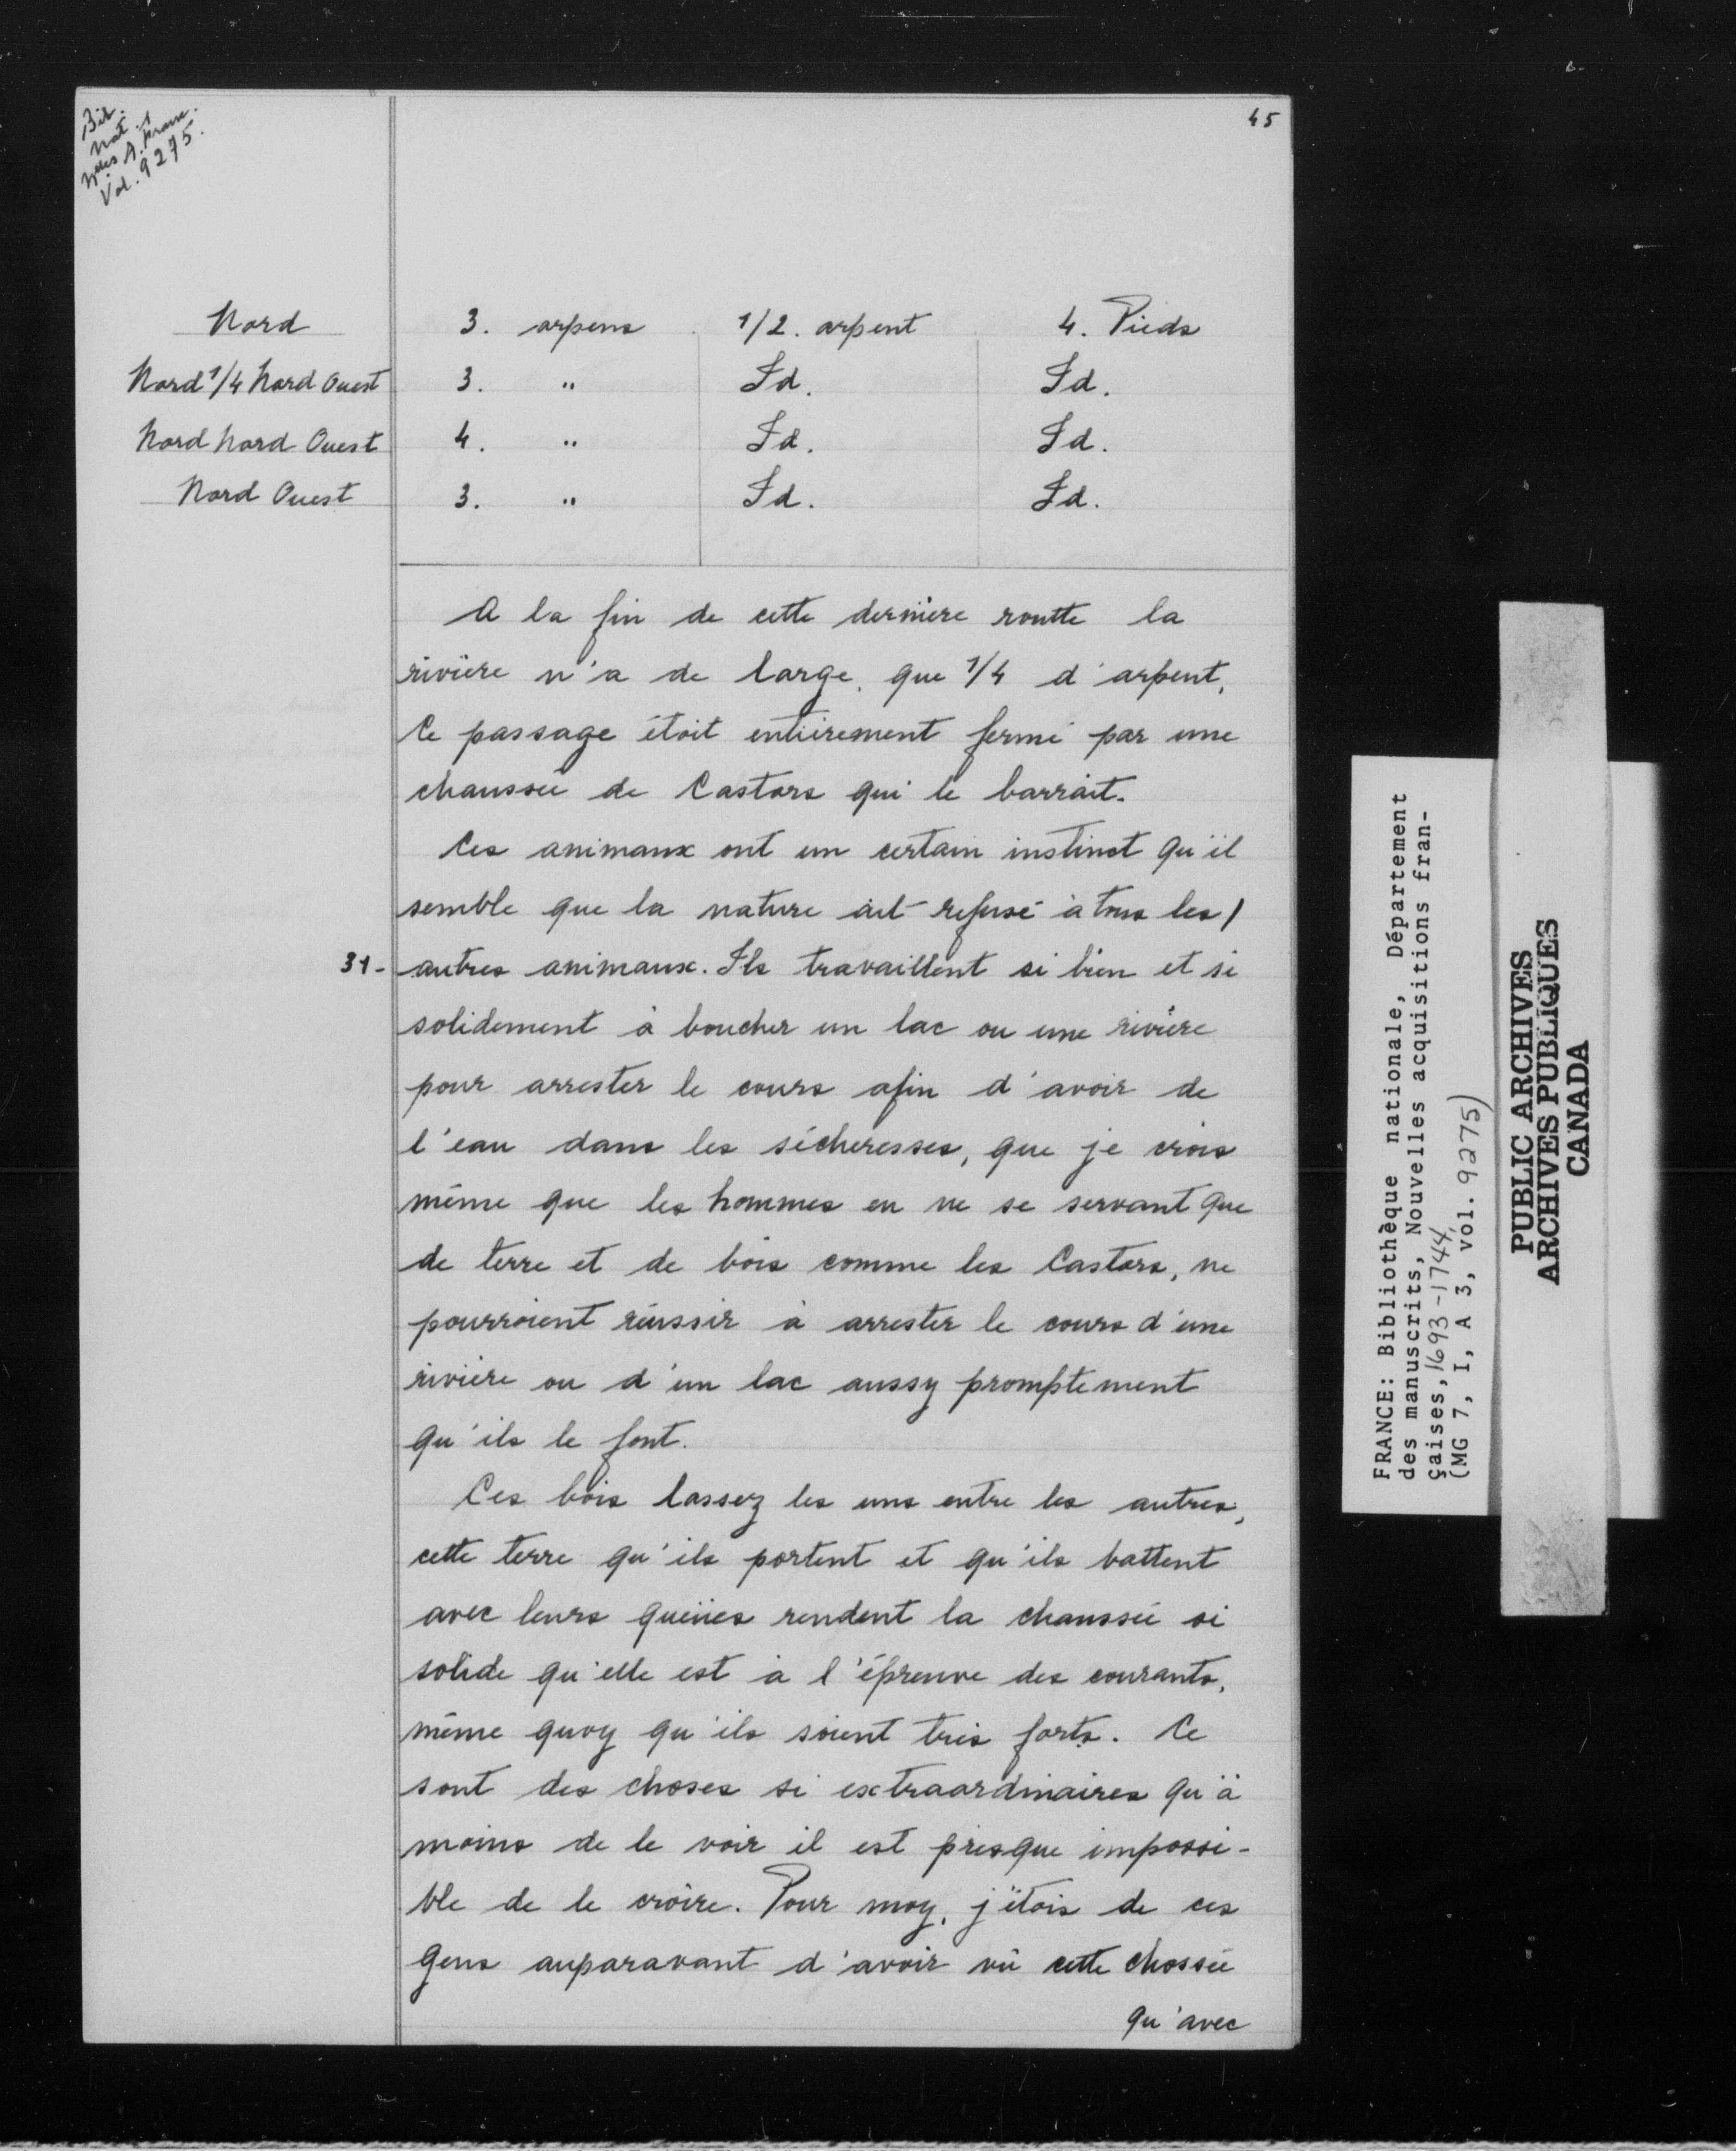 45
Bib.
Nat.
Vol. 9275.
Nord 3. arpens 1/2. arpent 4. Pieds
Nord 1/4 Nord Ouest 3. " Id. Id.
Nord Nord Ouest 4. " Id. Id.
Nord Ouest 3. " Id. Id.
A la fin de cette dernière routte la
rivière n'a de large, que 1/4 d'arpent,
Ce passage étoit entièrement fermé par une
chaussée de Castors qui le barrait.
Ces animaux ont un certain instinct qu'il
semble que la nature ait refusé à tous les/
31- autres animaux. Ils travaillent si bien et si
solidement à boucher un lac ou une rivière
pour arrester le cours afin d'avoir de
l'eau dans les sécheresses, que je crois
même que les hommes en ne se servant que
de terre et de bois comme les Castors, ne
pourroient réussir à arrester le cours d'une
rivière ou d'un lac aussy promptement
qu'ils le font.
Ces bois lassez les uns entre les autres,
cette terre qu'ils portent et qu'ils battent
avec leurs queües rendent la chaussée si
solide qu'elle est à l'épreuve des courants,
même quoy qu'ils soient très forts. Ce
sont des choses si extraordinaires qu'à
moins de le voir il est presque impossi-
ble de le croire. Pour moy, j'étois de ces
gens auparavant d'avoir vû cette chossée
qu'avec
FRANCE: Bibliothèque nationale, Département
des manuscrits, Nouvelles acquisitions fran-
çaises, 1693-1744,
(MG 7, I, A 3, vol. 9275)
PUBLIC ARCHIVES
ARCHIVES PUBLIQUES
CANADA